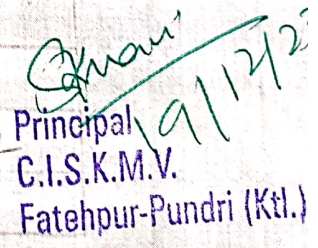 19/12/23
Principal
C.I.S.K.M.V.
Fatehpur-Pundri (Ktl.)